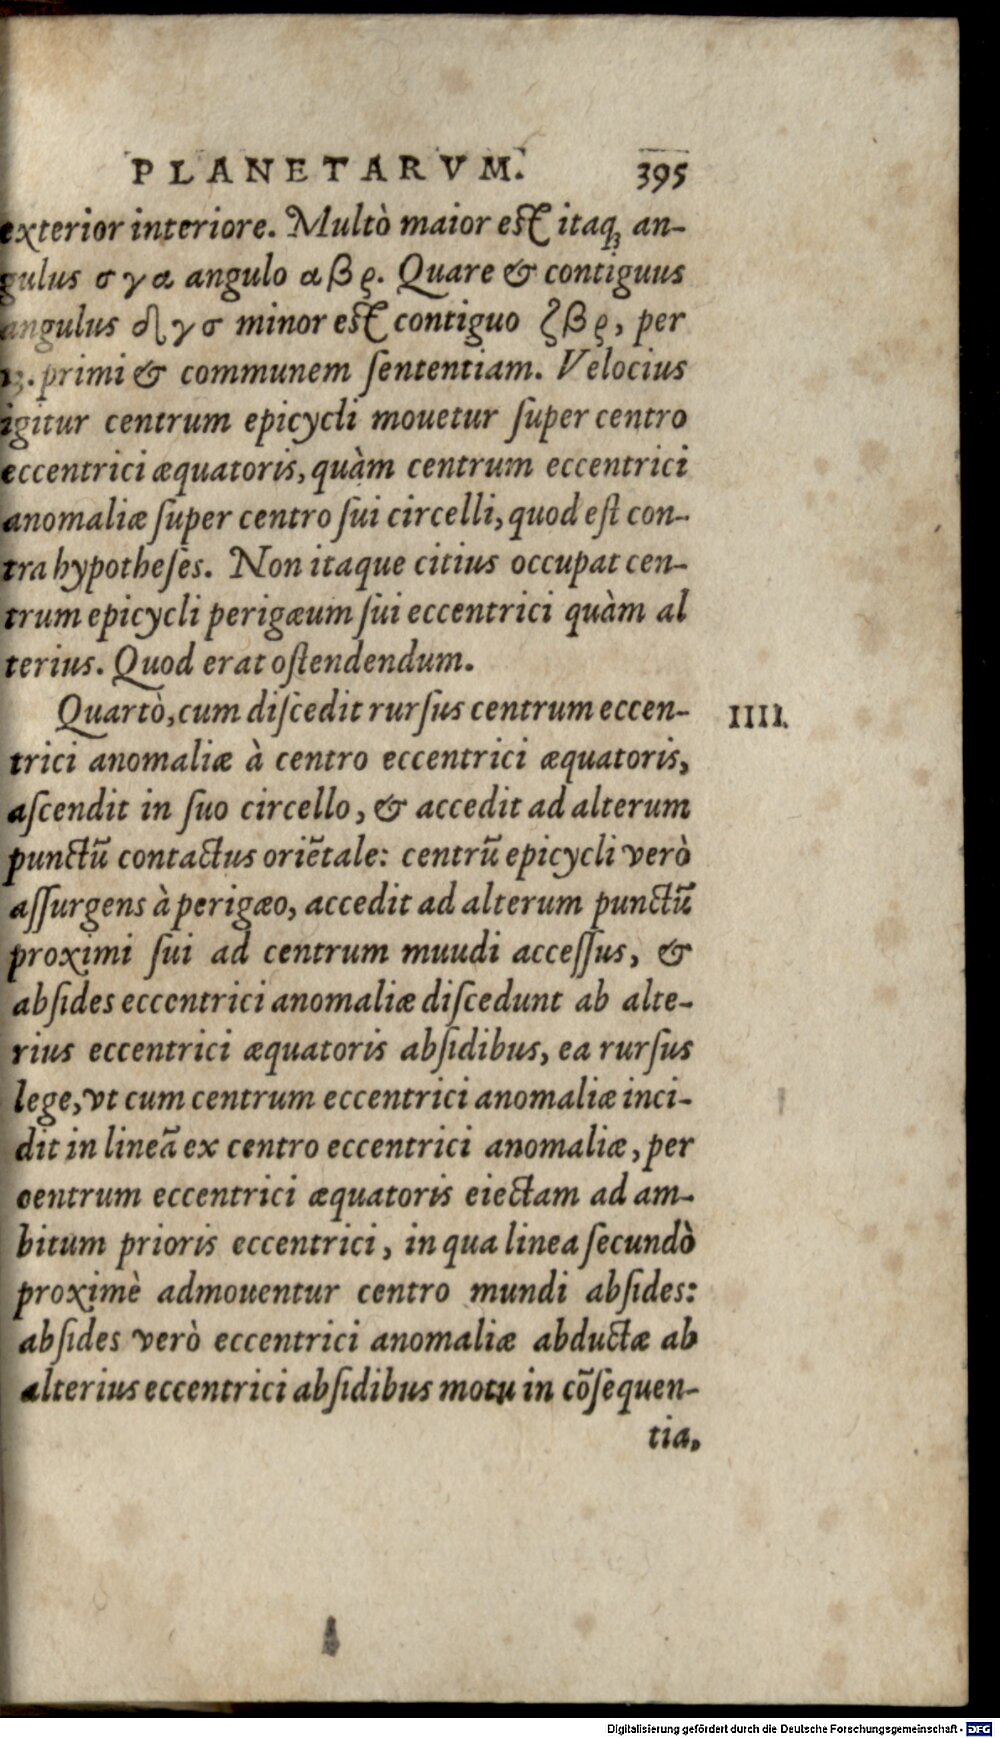 PLANETARVM. 395
exterior interiore. Multò maior est itaq; an-
gulus σ γ α angulo α β ϱ. Quare & contiguus
angulus δ γ σ minor est contiguo ζ β ϱ, per
13. primi & communem sententiam. Velocius
igitur centrum epicycli mouetur super centro
eccentrici æquatoris, quàm centrum eccentrici
anomaliæ super centro sui circelli, quod est con-
tra hypotheses. Non itaque citius occupat cen-
trum epicycli perigæum sui eccentrici quàm al
terius. Quod erat ostendendum.
Quartò, cum discedit rursus centrum eccen- IIII.
trici anomaliæ à centro eccentrici æquatoris,
ascendit in suo circello, & accedit ad alterum
punctū contactus oriētale: centrū epicycli verò
assurgens à perigæo, accedit ad alterum punctū
proximi sui ad centrum muudi accessus, &
absides eccentrici anomaliæ discedunt ab alte-
rius eccentrici æquatoris absidibus, ea rursus
lege, vt cum centrum eccentrici anomaliæ inci-
dit in lineā ex centro eccentrici anomaliæ, per
centrum eccentrici æquatoris eiectam ad am-
bitum prioris eccentrici, in qua linea secundò
proximè admouentur centro mundi absides:
absides verò eccentrici anomaliæ abductæ ab
alterius eccentrici absidibus motu in cōsequen-
tia.
Digitalisierung gefördert durch die Deutsche Forschungsgemeinschaft - DFG